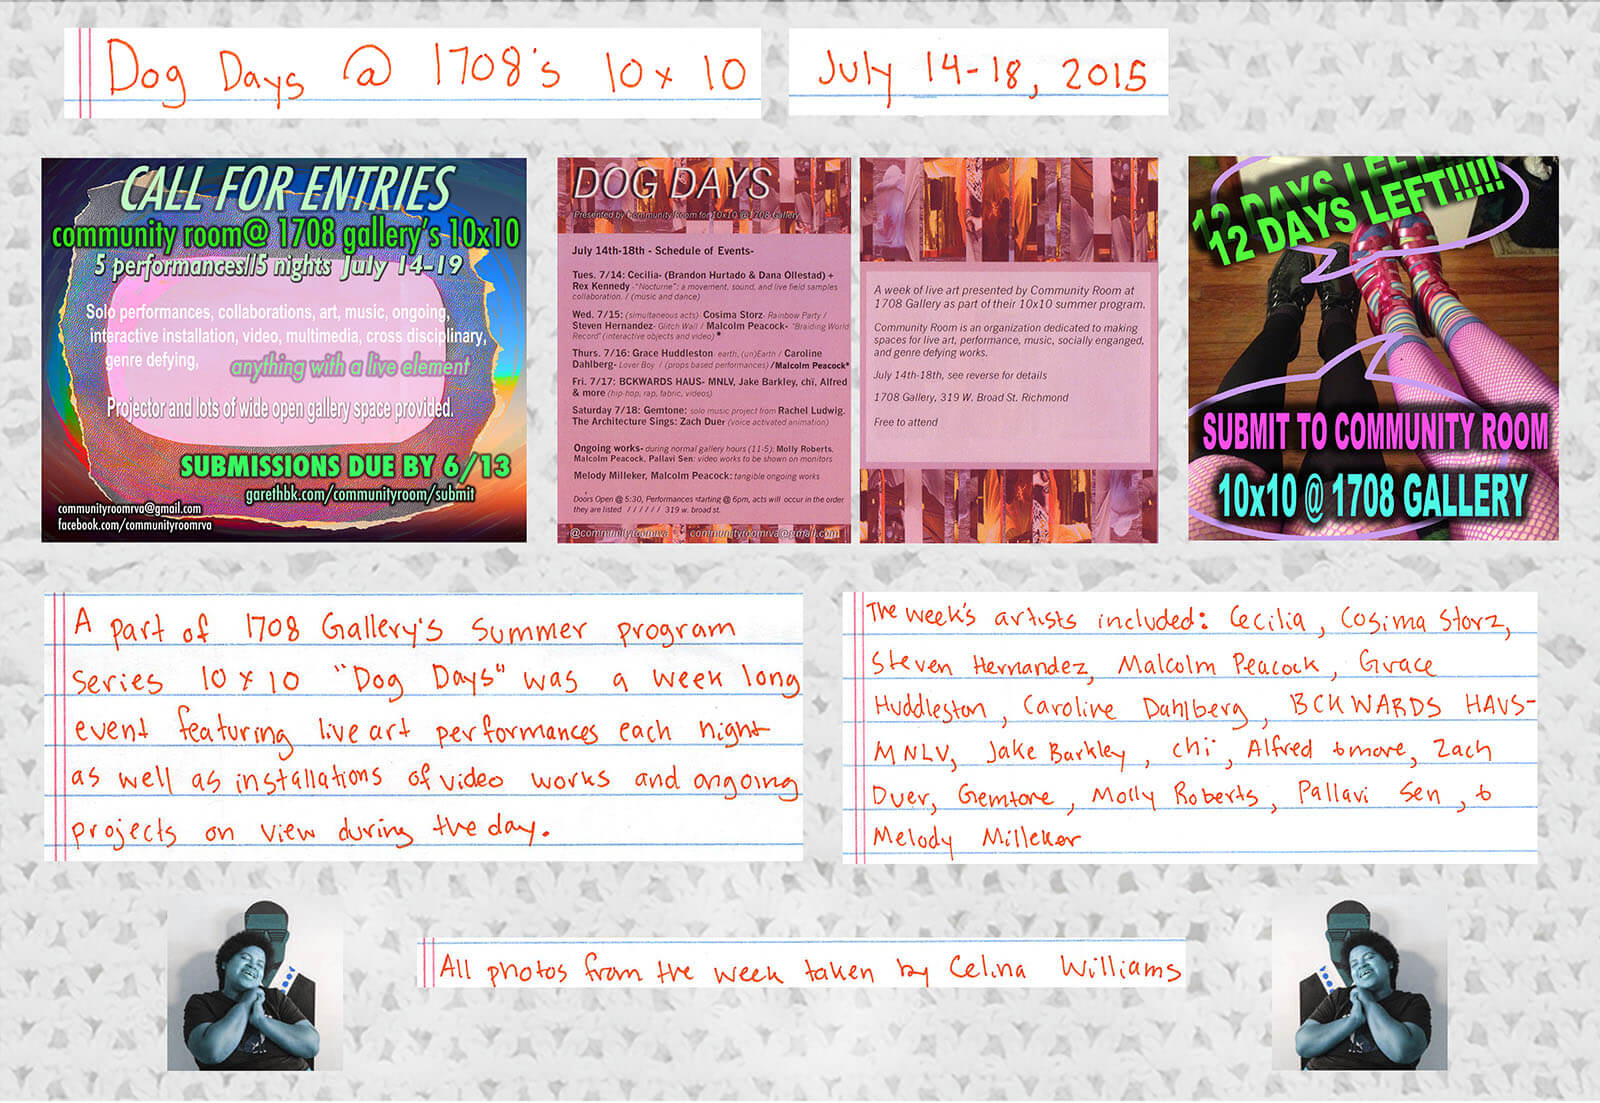 Dog Days @ 1708's 10x10
July 14-18, 2015
CALL FOR ENTRIES
community room@ 1708 gallery's 10x10
5 performances//5 nights July 14-19
Solo performances, collaborations, art, music, ongoing,
interactive installation, video, multimedia, cross disciplinary,
genre defying, anything with a live element
Projector and lots of wide open gallery space provided.
SUBMISSIONS DUE BY 6/13
garethbk.com/communityroom/submit
communityroomrva@gmail.com
facebook.com/communityroomrva
DOG DAYS
Presented by Community Room for 10x10 @ 1708 Gallery
July 14th-18th - Schedule of Events-
Tues. 7/14: Cecilia- (Brandon Hurtado & Dana Ollestad) +
Rex Kennedy -"Nocturne": a movement, sound, and live field samples
collaboration. / (music and dance)
Wed. 7/15: (simultaneous acts) Cosima Storz- Rainbow Party /
Steven Hernandez- Glitch Wall / Malcolm Peacock- "Braiding World
Record" (interactive objects and video) *
Thurs. 7/16: Grace Huddleston earth, (un)Earth / Caroline
Dahlberg- Lover Boy / (props based performances) /Malcolm Peacock*
Fri. 7/17: BCKWARDS HAUS- MNLV, Jake Barkley, chï, Alfred
& more (hip-hop, rap, fabric, videos)
Saturday 7/18: Gemtone: solo music project from Rachel Ludwig.
The Architecture Sings: Zach Duer (voice activated animation)
Ongoing works- during normal gallery hours (11-5): Molly Roberts,
Malcolm Peacock, Pallavi Sen: video works to be shown on monitors
Melody Milleker, Malcolm Peacock: tangible ongoing works
Doors Open @ 5:30, Performances starting @ 6pm, acts will occur in the order
they are listed / / / / / / 319 w. broad st.
@communityroomrva communityroomrva@gmail.com
A week of live art presented by Community Room at
1708 Gallery as part of their 10x10 summer program.
Community Room is an organization dedicated to making
spaces for live art, performance, music, socially enganged,
and genre defying works.
July 14th-18th, see reverse for details
1708 Gallery, 319 W. Broad St. Richmond
Free to attend
12 DAYS LEFT!!!!!
12 DAYS LEFT!!!!!
SUBMIT TO COMMUNITY ROOM
10x10 @ 1708 GALLERY
A part of 1708 Gallery's Summer program
series 10x10 "Dog Days" was a week long
event featuring live art performances each night
as well as installations of video works and ongoing
projects on view during the day.
The week's artists included: Cecilia, Cosima Storz,
Steven Hernandez, Malcolm Peacock, Grace
Huddleston, Caroline Dahlberg, BCKWARDS HAUS-
MNLV, Jake Barkley, chi, Alfred & more, Zach
Duer, Gemtone, Molly Roberts, Pallavi Sen, &
Melody Milleker
All photos from the week taken by Celina Williams